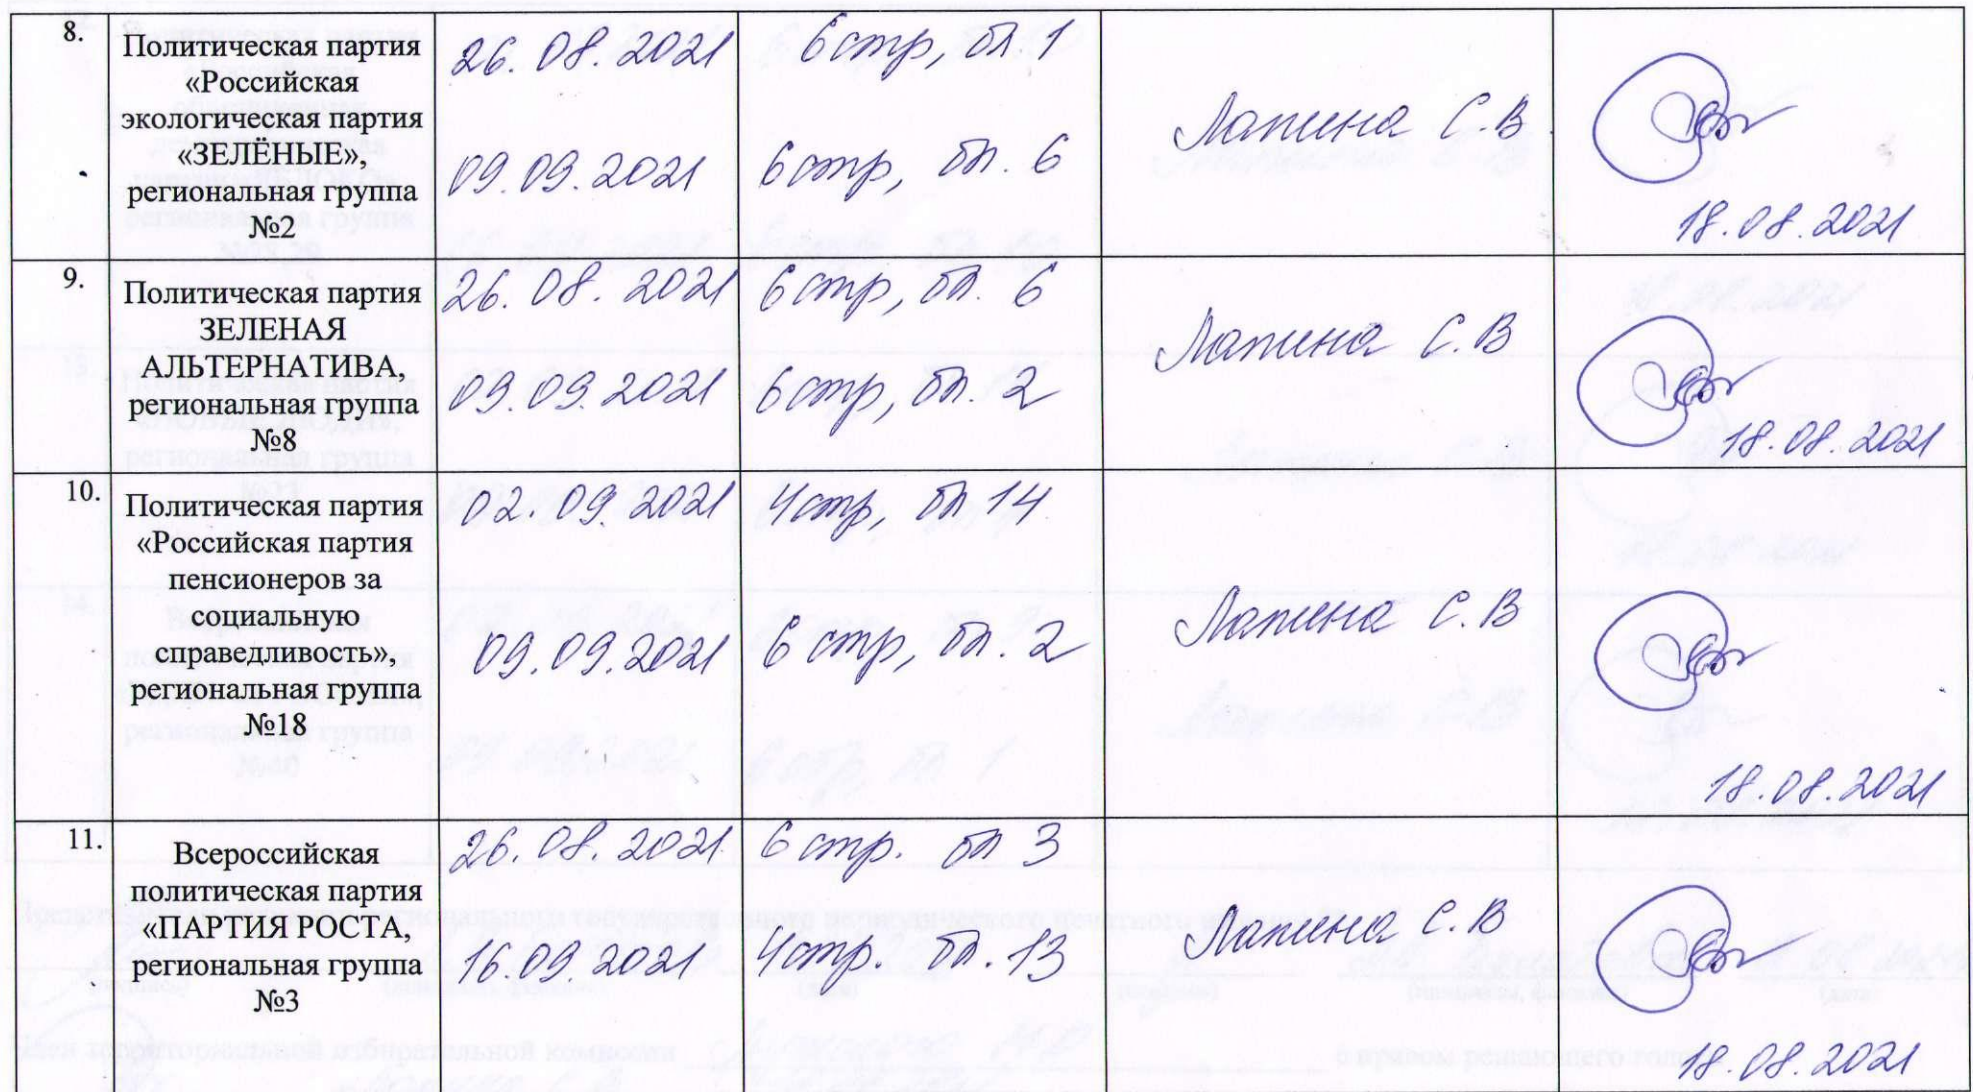 8.
Политическая партия
«Российская
экологическая партия
«ЗЕЛЁНЫЕ»,
региональная группа
№2
26.08.2021
6 стр, бл. 1
09.09.2021
6 стр, бл. 6
Лапина С.В.
18.08.2021
9.
Политическая партия
ЗЕЛЕНАЯ
АЛЬТЕРНАТИВА,
региональная группа
№8
26.08.2021
6 стр, бл. 6
09.09.2021
6 стр, бл. 2
Лапина С.В
18.08.2021
10.
Политическая партия
«Российская партия
пенсионеров за
социальную
справедливость»,
региональная группа
№18
02.09.2021
4 стр, бл 14
09.09.2021
6 стр, бл. 2
Лапина С.В
18.08.2021
11.
Всероссийская
политическая партия
«ПАРТИЯ РОСТА,
региональная группа
№3
26.08.2021.
6 стр. бл 3
16.09 2021
4 стр. бл. 13
Лапина С.В
18.08.2021